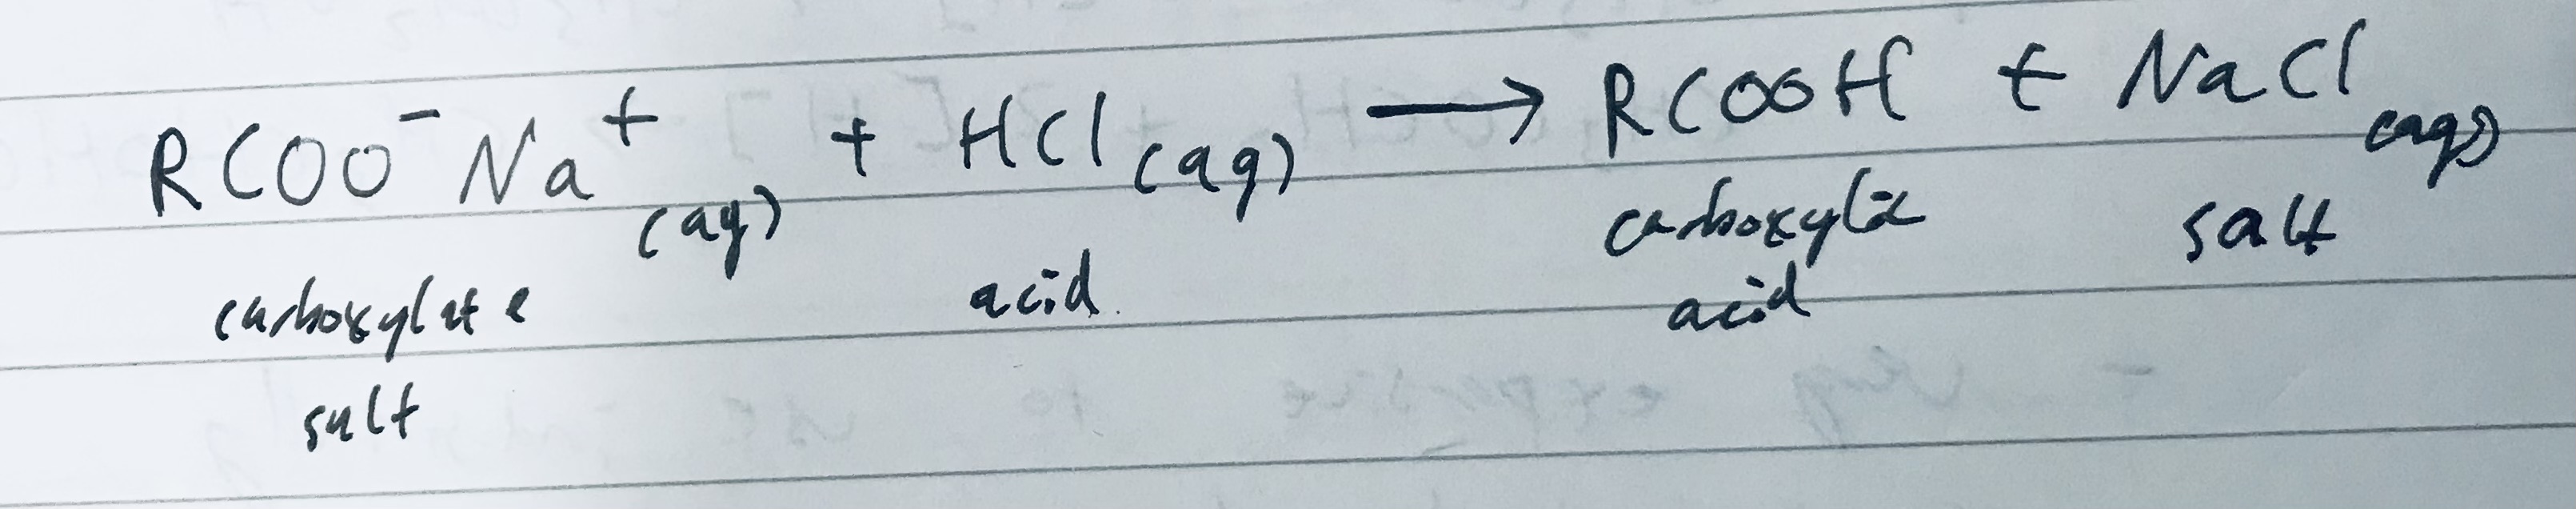 RCOO⁻Na⁺(aq) + HCl(aq) → RCOOH + NaCl(aq)
carboxylate acid carboxylic salt
salt acid